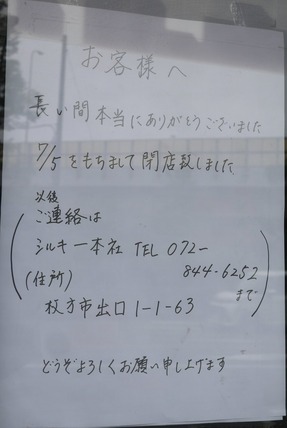 お客様へ
長い間本当にありがとうございました
7/5をもちまして閉店致しました
以後
ご連絡は
シルキー本社 TEL 072-
844-6252
(住所) まで
枚方市出口1-1-63
どうぞよろしくお願い申し上げます